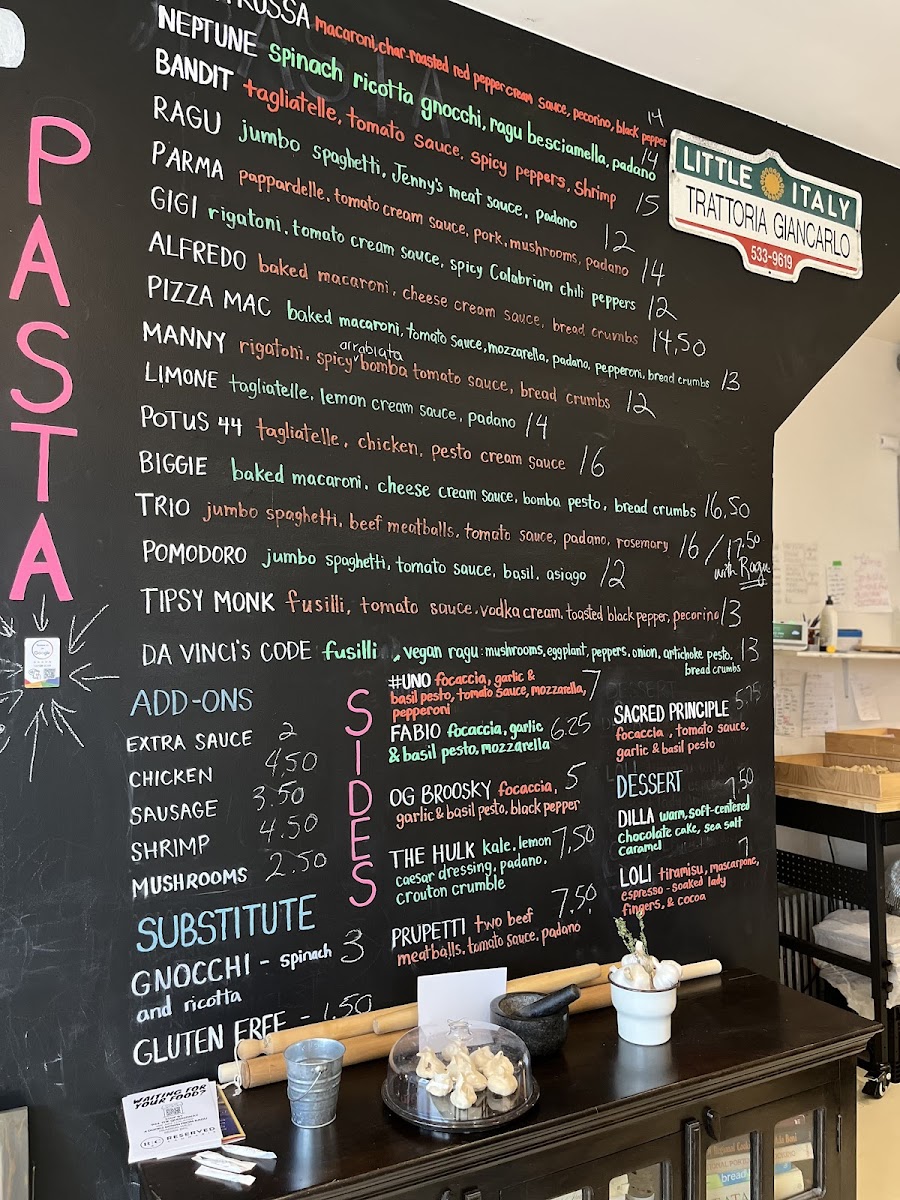 PASTA
ROSSA macaroni, char-roasted red pepper cream sauce, pecorino, black pepper 14
NEPTUNE spinach ricotta gnocchi, ragu besciamella, padano 14
BANDIT tagliatelle, tomato sauce, spicy peppers, shrimp 15
RAGU jumbo spaghetti, Jenny's meat sauce, padano 12
PARMA pappardelle, tomato cream sauce, pork, mushrooms, padano 14
GIGI rigatoni, tomato cream sauce, spicy Calabrian chili peppers 12
ALFREDO baked macaroni, cheese cream sauce, bread crumbs 14,50
PIZZA MAC baked macaroni, tomato sauce, mozzarella, padano, pepperoni, bread crumbs 13
arrabiata
MANNY rigatoni, spicy bomba tomato sauce, bread crumbs 12
LIMONE tagliatelle, lemon cream sauce, padano 14
POTUS 44 tagliatelle, chicken, pesto cream sauce 16
BIGGIE baked macaroni, cheese cream sauce, bomba pesto, bread crumbs 16,50
TRIO jumbo spaghetti, beef meatballs, tomato sauce, padano, rosemary 16 / 17,50
with Ragu
POMODORO jumbo spaghetti, tomato sauce, basil, asiago 12
TIPSY MONK fusilli, tomato sauce, vodka cream, toasted black pepper, pecorino 13
DA VINCI'S CODE fusilli, vegan ragu: mushrooms, eggplant, peppers, onion, artichoke pesto, 13
bread crumbs
LITTLE ITALY
TRATTORIA GIANCARLO
533-9619
ADD-ONS
EXTRA SAUCE 2
CHICKEN 4,50
SAUSAGE 3.50
SHRIMP 4.50
MUSHROOMS 2.50
SUBSTITUTE
GNOCCHI - spinach 3
and ricotta
GLUTEN FREE - 1.50
SIDES
#UNO focaccia, garlic & 7
basil pesto, tomato sauce, mozzarella,
pepperoni
FABIO focaccia, garlic 6.25
& basil pesto, mozzarella
OG BROOSKY focaccia, 5
garlic & basil pesto, black pepper
THE HULK kale, lemon 7,50
caesar dressing, padano,
crouton crumble
PRUPETTI two beef 7,50
meatballs, tomato sauce, padano
SACRED PRINCIPLE 5.75
focaccia, tomato sauce,
garlic & basil pesto
DESSERT
7,50
DILLA warm, soft-centered
chocolate cake, sea salt
caramel
7
LOLI tiramisu, mascarpone,
espresso-soaked lady
fingers, & cocoa
WAITING FOR
YOUR FOOD?
RESERVED